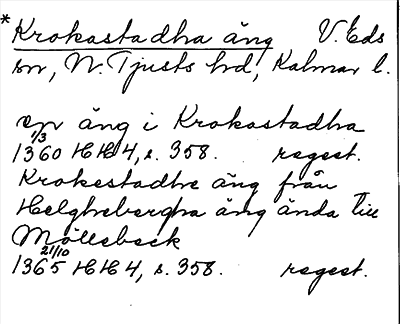 *Krokastadha äng V. Eds
sn, N. Tjusts hd, Kalmar l.
en äng i Krokastadha
1/3
1360 HH 4, s. 358. regest.
Krokestadhe äng från
Helghebergha äng ända till
Möllebeck
21/10
1365 HH 4, s. 358. regest.